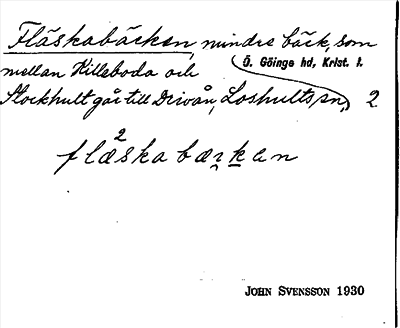 Fläskabäcken, mindre bäck, som
mellan Killeboda och Ö. Göinge hd, Krist. l.
Stockhult går till Drivån, Loshults sn, 2
2
flæska bærkan
JOHN SVENSSON 1930